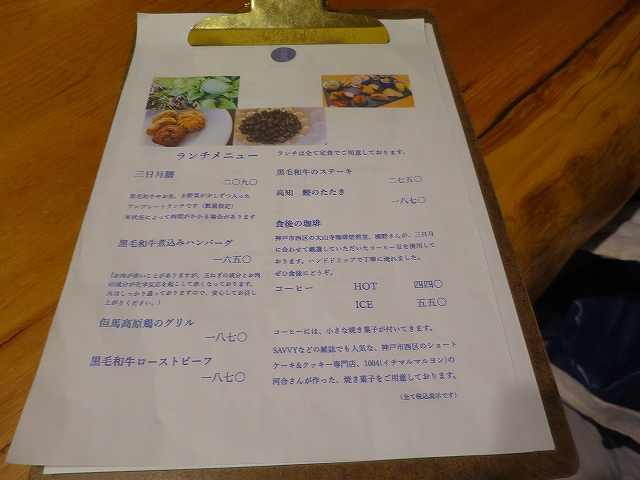 ランチメニュー
三日月膳
二〇九〇
黒毛和牛やお魚、お野菜が少しずつ入った
ワンプレートランチです（数量限定）
※状況によって時間がかかる場合があります
黒毛和牛煮込みハンバーグ
一六五〇
（お肉が赤いことがありますが、玉ねぎの成分とお肉
の成分が化学反応を起こして赤くなっております。
火はしっかり通っておりますので、安心してお召し
上がりください。）
但馬高原鶏のグリル
一八七〇
黒毛和牛ローストビーフ
一八七〇
ランチは全て定食でご用意しております。
黒毛和牛のステーキ
二七五〇
高知　鰹のたたき
一八七〇
食後の珈琲
神戸市西区の太山寺珈琲焙煎室、横野さんが、三日月
に合わせて厳選していただいたコーヒー豆を使用して
おります。ハンドドリップで丁寧に淹れました。
ぜひ食後にどうぞ。
コーヒー　HOT　四四〇
ICE　五五〇
コーヒーには、小さな焼き菓子が付いてきます。
SAVVYなどの雑誌でも人気な、神戸市西区のショート
ケーキ&クッキー専門店、1004(イチマルマルヨン)の
河合さんが作った、焼き菓子をご用意しております。
（全て税込表示です）